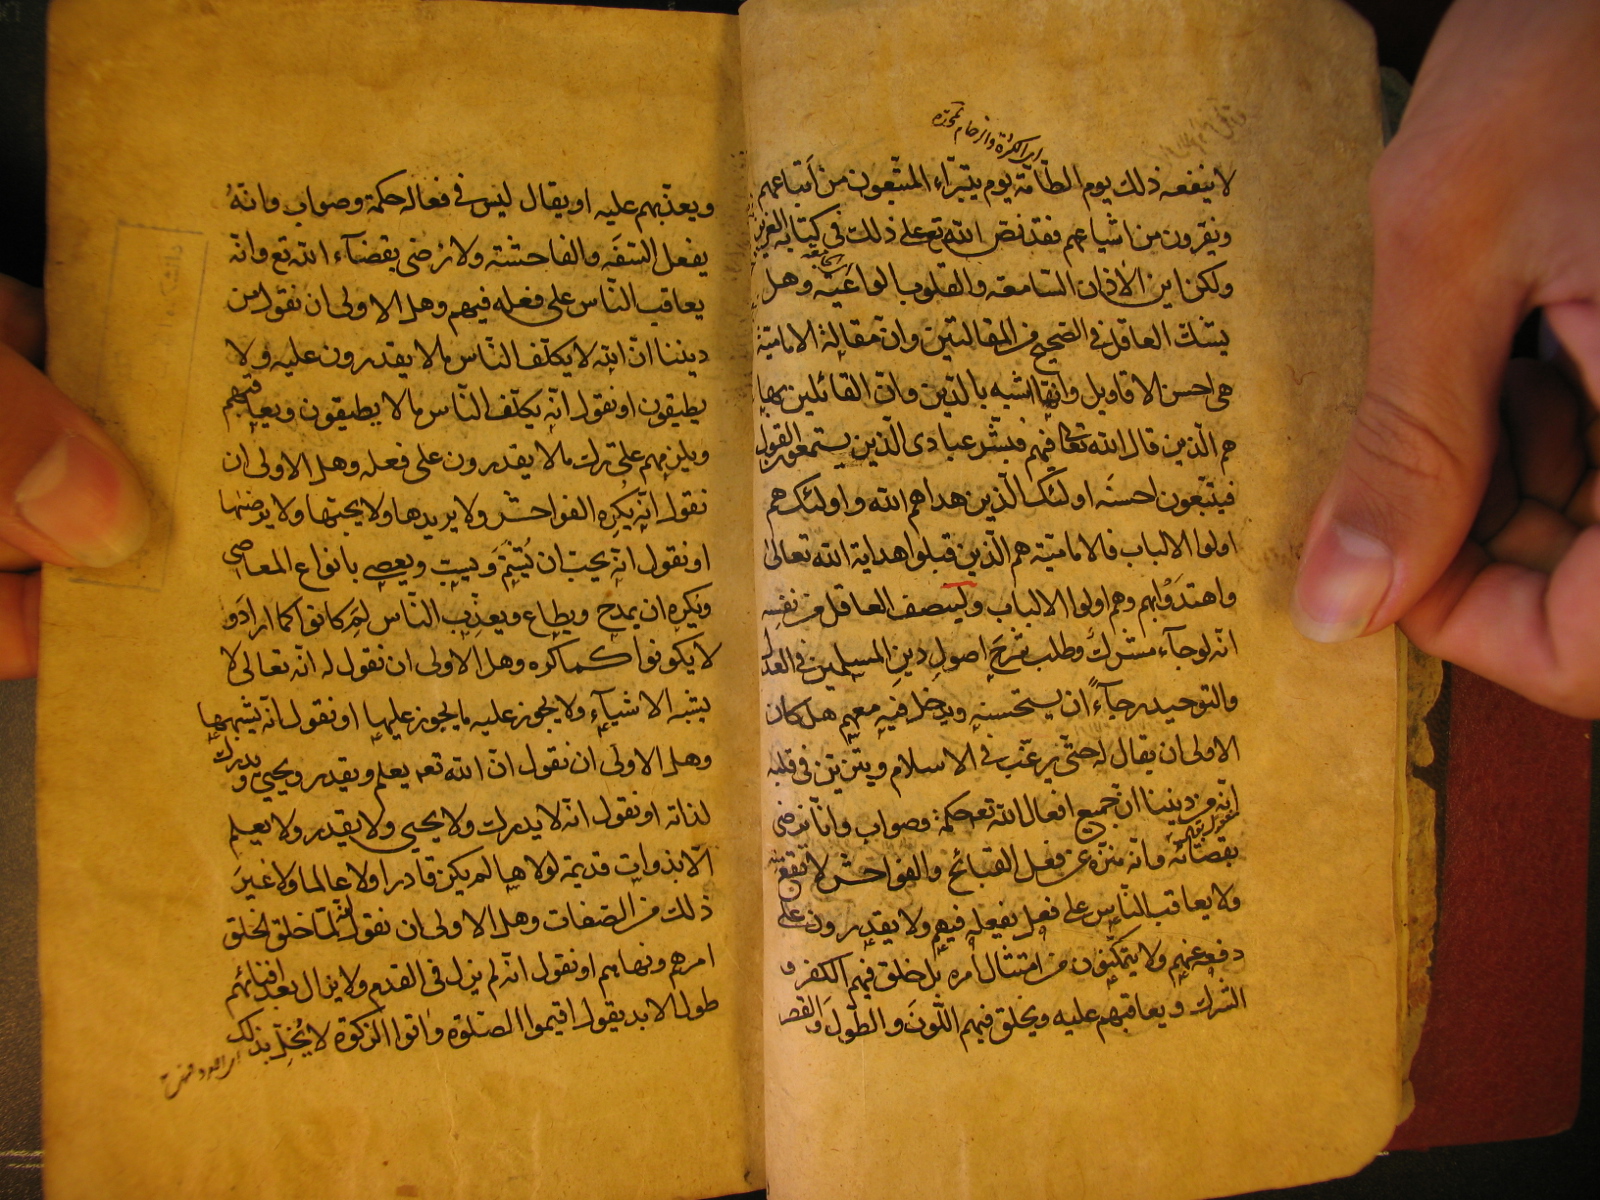 لا ينفعه ذلك يوم الطّامّة يوم يتبرّاء المتبعون من اتباعهم
ويفرون من اشياعهم فقد نص الله تع على ذلك في كتابه العزيز
ولكن اين الاذان السامعه والقلوب الواعية وهل
يشك العاقل في الصحيح من المقالتين وان مقالة الامامية
هي احسن الاقاويل وانها اشبه بالدين وان القائلين بها
هم الّذين قال الله تعالى فيهم فبشّر عبادى الّذين يستمعون القول
فيتبعون احسنه اولئك الّذين هداهم الله و اولئك هم
اولوا الالباب فالامامية هم الّذين قبلوا هداية الله تعالى
واهتدوا بهم وهم اولوا الالباب ولينصف العاقل من نفسه
انه لو جاء مشرك وطلب شرح اصول دين المسلمين في العدل
والتوحيد رجاءً ان يستحسنه ويدخل فيه معهم هل كان
الاولى ان يقال له حتّى يرغب في الاسلام ويتزين في قلبه
انه من ديننا ان جميع افعال الله تع حكمة وصواب وانا نرضى
بقضائه وانه منزّه عن فعل القبائح والفواحش لا تقع منه
ولا يعاقب الناس على فعل يفعله فيهم ولا يقدرون على
دفعه عنهم ولا يتمكنون من امتثال امره بل خلق فيهم الكفر و
الشرك ويعاقبهم عليه ويخلق فيهم اللون والطول والقصر
ويعذبهم عليه او يقال ليس في فعاله حكمة وصواب وانهُ
يفعل السفه والفاحشة ولا نرضى بقضآء الله تع وانّه
يعاقب النّاس على فعله فيهم وهل الاولى ان نقول من
ديننا انّ الله لا يكلّف النّاس ما لا يقدرون عليه ولا
يطيقون او نقول انّه يكلّف النّاس ما لا يطيقون ويعاقبهم
ويلزمهم على ترك ما لا يقدرون على فعله وهل الاولى ان
نقول انّه يكره الفواحش ولا يريدها ولا يحبها ولا يرضاها
او نقول انه يحب ان يُشتم ويسب ويعصى بانواع المعاصى
ويكره ان يمدح ويطاع ويعذب النّاس لم كانوا كما ارادو
لا يكونوا كما كره وهل الاولى ان نقول له انّه تعالى لا
يشبه الاشيآء ولا يجوز عليه ما يجوز عليها او نقول انه يشبهها
وهل الاولى ان نقول انّ الله تع يعلم ويقدر ويحيى ويدرك
لذاته او نقول انّه لا يدرك ولا يحيى ولا يقدر ولا يعلم
الّا بذوات قديمة لولاها لم يكن قادرا ولا عالما ولا غير
ذلك من الصّفات وهل الاولى ان نقول انه لمّا خلق الخلق
امرهم ونهاهم او نقول انّه لم يزل في القدم ولا يزال بعد افنائهم
طول الابد يقول اقيموا الصّلوة واتوا الزكوة لا يُخلّ بذلك